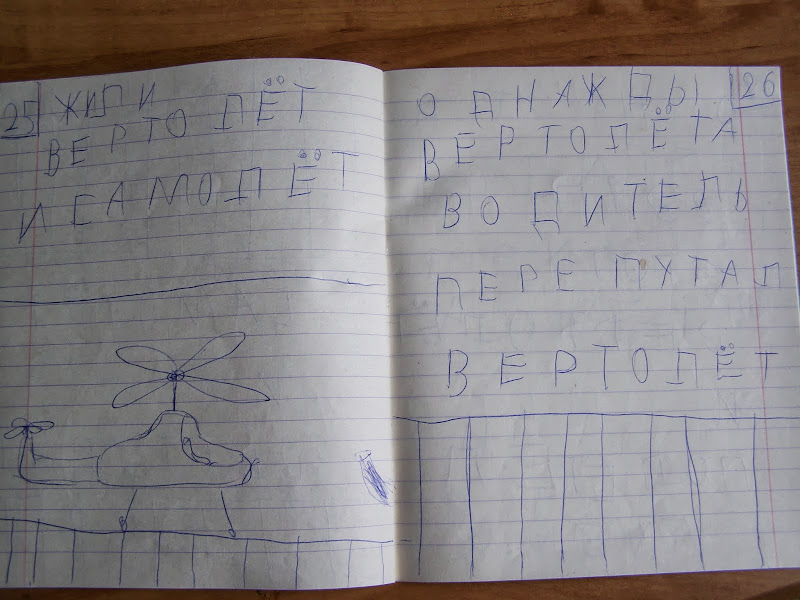 25
ЖИЛИ
ВЕРТОЛЁТ
И САМОЛЁТ
26
ОДНАЖДЫ
ВЕРТОЛЁТА
ВОДИТЕЛЬ
ПЕРЕПУТАЛ
ВЕРТОЛЁТ